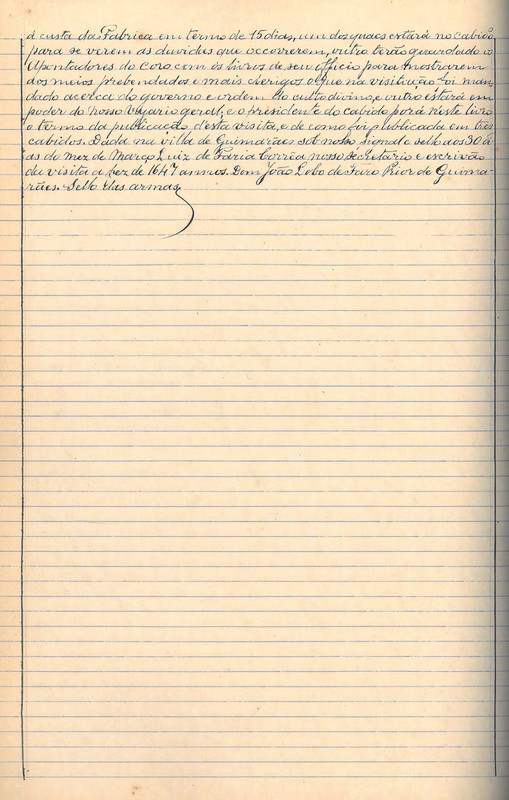 á custa da Fabrica em termo de 15 dias, um dos quaes estará no cabido,
para se verem as duvidas que occorrerem, outro terão guardado os
Apontadores do coro com os livros de seu officio para amostrarem
aos meios prebendados e mais clerigos o que na visitação foi man-
dado acerca do governo e ordem do culto divino, e outro estará em
poder do nosso Vigario geral; e o presidente do cabido porá neste livro
o termo da publicação d'esta visita, e de como foi publicada em tres
cabidos. Dada na villa de Guimarães sob nosso signal e sello aos 30 di-
as do mez de Março, Luiz de Faria Corrêa nosso secretario e escrivão
da visita a fez de 1647 annos. Dom João Lobo de Faro Prior de Guima-
rães. Sello das armas